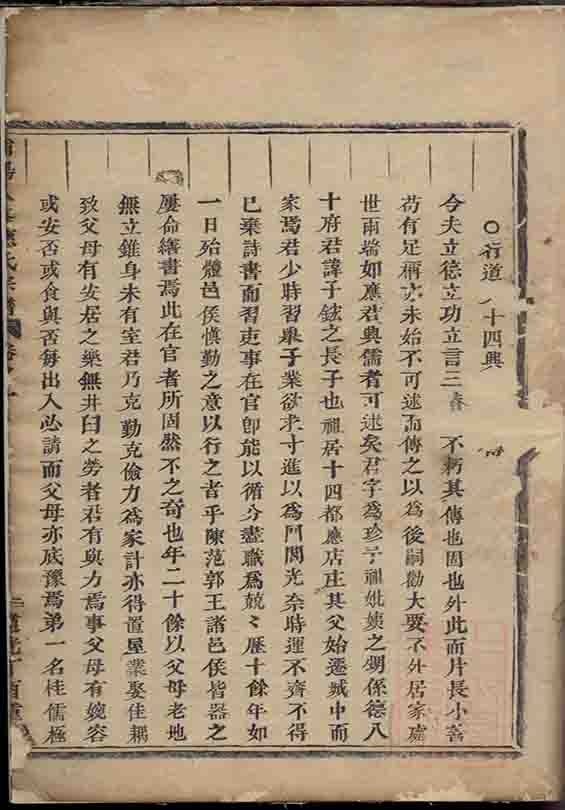 ○行道 八十四興
今夫立德立功立言三 不朽其傳也固也外此而片長小善
苟有足稱亦未始不可述而傳之以為後嗣勸大要不外居家處
世兩端如應君與儒者可述矣君字為珍子祖妣姨之甥係德八
十府君諱子鉉之長子也祖居十四都應店庄其父始遷城中而
家焉君少時習舉子業欲求寸進以為門閭光奈時運不齊不得
已棄詩書而習吏事在官卽能以循分盡職為兢〻歷十餘年如
一日殆體邑侯慎勤之意以行之者乎陳范郭王諸邑侯皆器之
屢命繕書焉此在官者所固然不之奇也年二十餘以父母老地
無立錐身未有室君乃克勤克儉力為家計亦得置屋業娶佳耦
致父母有安居之樂無井臼之勞者君有與力焉事父母有婉容
或安否或食與否每出入必請而父母亦底豫焉弟一名桂儒極
氏宗譜